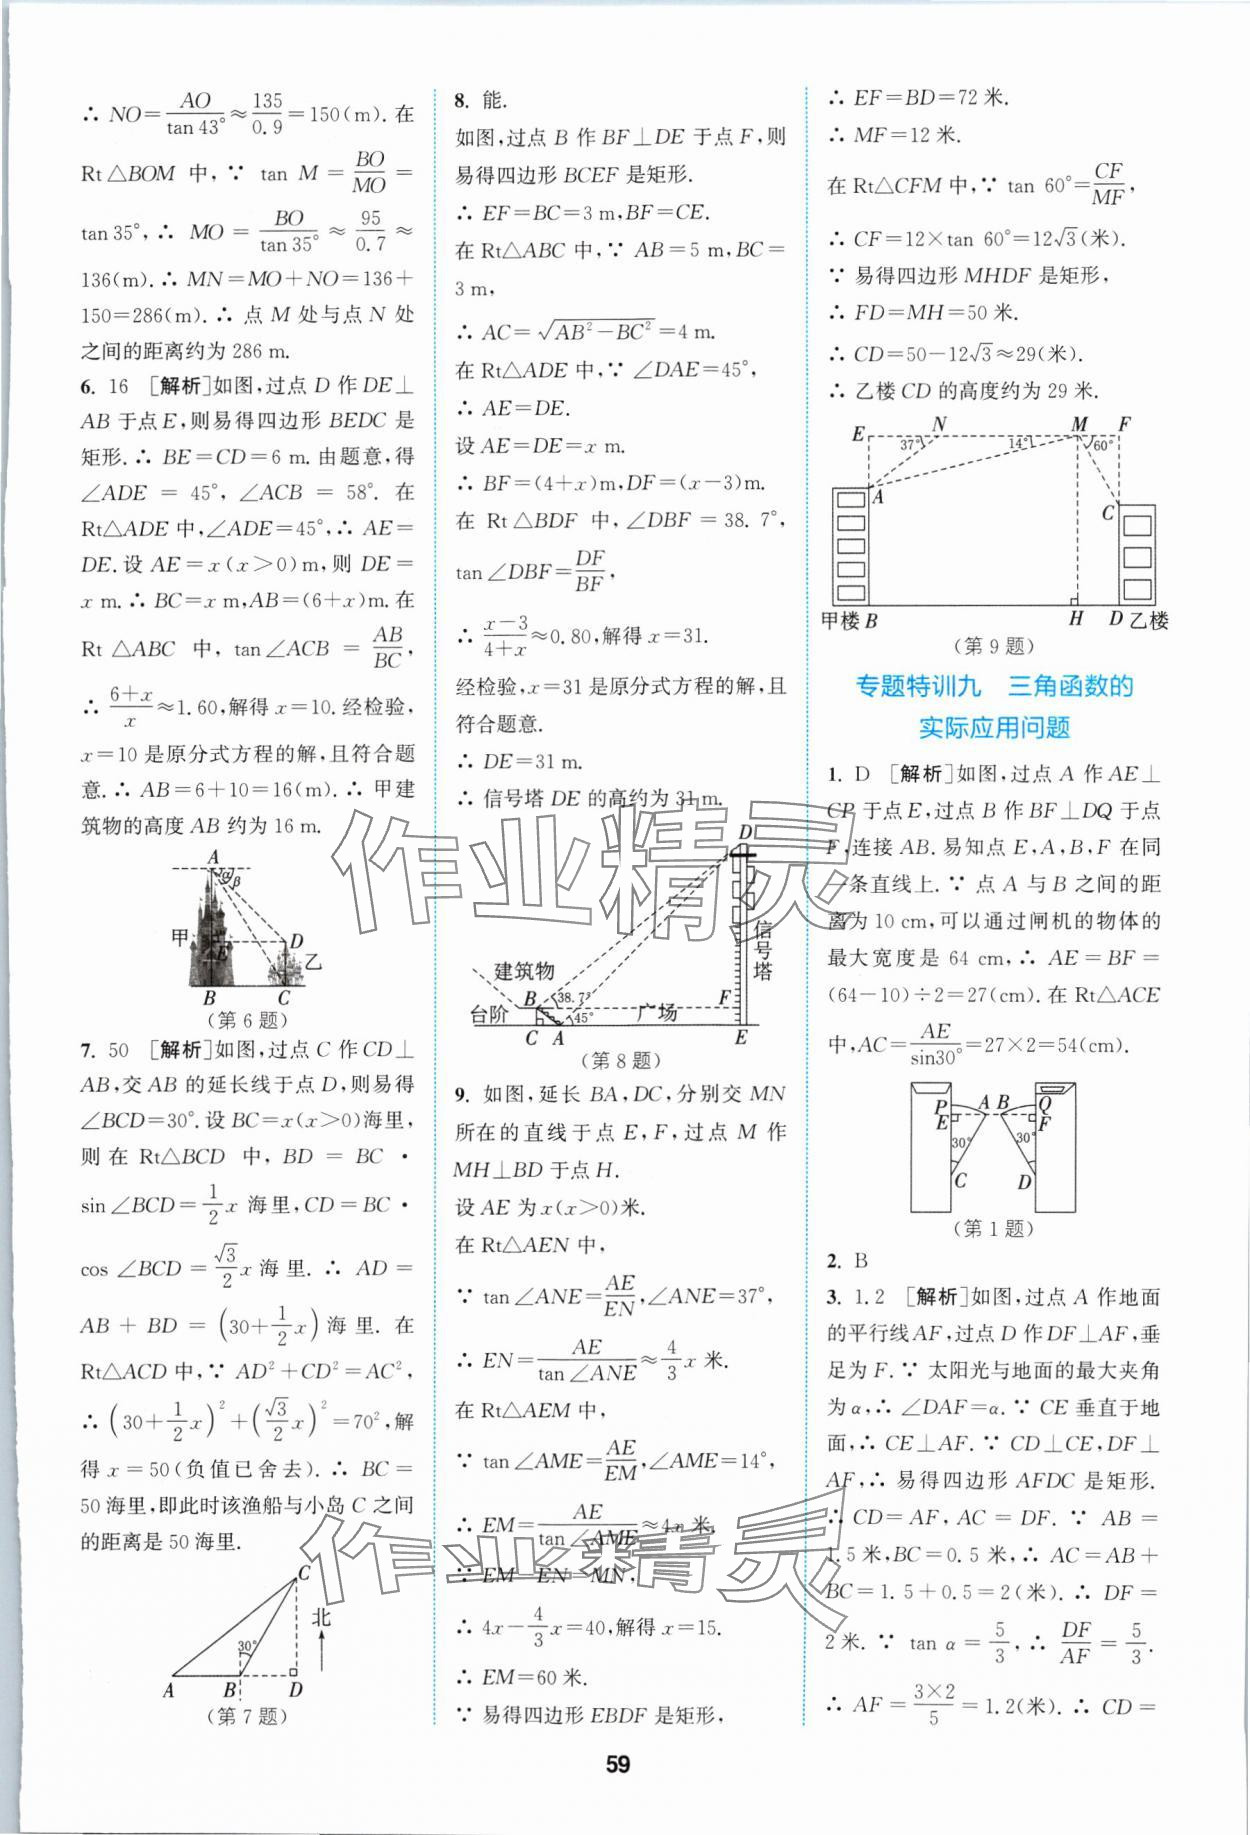 ∴ NO=AO/tan 43°≈135/0.9=150(m). 在
Rt△BOM 中,∵ tan M=BO/MO=
tan 35°,∴ MO=BO/tan 35°≈95/0.7≈
136(m).∴ MN=MO+NO=136+
150=286(m).∴ 点 M 处与点 N 处
之间的距离约为 286 m.
6. 16 [解析]如图,过点 D 作 DE⊥
AB 于点 E,则易得四边形 BEDC 是
矩形.∴ BE=CD=6 m.由题意,得
∠ADE = 45°,∠ACB = 58°. 在
Rt△ADE 中,∠ADE=45°,∴ AE=
DE.设 AE=x(x>0)m,则 DE=
x m.∴ BC=x m,AB=(6+x)m.在
Rt △ABC 中,tan∠ACB = AB/BC,
∴ (6+x)/x≈1.60,解得 x=10.经检验,
x=10 是原分式方程的解,且符合题
意.∴ AB=6+10=16(m).∴ 甲建
筑物的高度 AB 约为 16 m.
A
α β
甲 E D 乙
B C
(第 6 题)
7. 50 [解析]如图,过点 C 作 CD⊥
AB,交 AB 的延长线于点 D,则易得
∠BCD=30°.设 BC=x(x>0)海里,
则在 Rt△BCD 中,BD = BC ·
sin∠BCD=1/2 x 海里,CD=BC ·
cos ∠BCD=√3/2 x 海里.∴ AD =
AB + BD = (30+1/2 x) 海里. 在
Rt△ACD 中,∵ AD²+CD²=AC²,
∴ (30+1/2 x)²+(√3/2 x)²=70²,解
得 x=50(负值已舍去).∴ BC=
50 海里,即此时该渔船与小岛 C 之间
的距离是 50 海里.
C
北
30°
A B D
(第 7 题)
8. 能.
如图,过点 B 作 BF⊥DE 于点 F,则
易得四边形 BCEF 是矩形.
∴ EF=BC=3 m,BF=CE.
在 Rt△ABC 中,∵ AB=5 m,BC=
3 m,
∴ AC=√(AB²−BC²)=4 m.
在 Rt△ADE 中,∵ ∠DAE=45°,
∴ AE=DE.
设 AE=DE=x m.
∴ BF=(4+x)m,DF=(x−3)m.
在 Rt △BDF 中,∠DBF=38.7°,
tan∠DBF=DF/BF,
∴ (x−3)/(4+x)≈0.80,解得 x=31.
经检验,x=31 是原分式方程的解,且
符合题意.
∴ DE=31 m.
∴ 信号塔 DE 的高约为 31 m.
D
信号塔
建筑物
B 38.7° F
台阶 45° 广场
C A E
(第 8 题)
9. 如图,延长 BA,DC,分别交 MN
所在的直线于点 E,F,过点 M 作
MH⊥BD 于点 H.
设 AE 为 x(x>0)米.
在 Rt△AEN 中,
∵ tan∠ANE=AE/EN,∠ANE=37°,
∴ EN=AE/tan∠ANE≈4/3 x 米.
在 Rt△AEM 中,
∵ tan∠AME=AE/EM,∠AME=14°,
∴ EM=AE/tan∠AME≈4x 米.
∵ EM−EN=MN,
∴ 4x−4/3 x=40,解得 x=15.
∴ EM=60 米.
∵ 易得四边形 EBDF 是矩形,
∴ EF=BD=72 米.
∴ MF=12 米.
在 Rt△CFM 中,∵ tan 60°=CF/MF,
∴ CF=12×tan 60°=12√3(米).
∵ 易得四边形 MHDF 是矩形,
∴ FD=MH=50 米.
∴ CD=50−12√3≈29(米).
∴ 乙楼 CD 的高度约为 29 米.
E N M F
37° 14° 60°
A
C
甲楼 B H D 乙楼
(第 9 题)
专题特训九 三角函数的
实际应用问题
1. D [解析]如图,过点 A 作 AE⊥
CP 于点 E,过点 B 作 BF⊥DQ 于点
F,连接 AB.易知点 E,A,B,F 在同
一条直线上.∵ 点 A 与 B 之间的距
离为 10 cm,可以通过闸机的物体的
最大宽度是 64 cm,∴ AE=BF=
(64−10)÷2=27(cm).在 Rt△ACE
中,AC=AE/sin30°=27×2=54(cm).
P A B Q
E F
30° 30°
C D
(第 1 题)
2. B
3. 1.2 [解析]如图,过点 A 作地面
的平行线AF,过点 D 作 DF⊥AF,垂
足为 F.∵ 太阳光与地面的最大夹角
为 α,∴ ∠DAF=α.∵ CE 垂直于地
面,∴ CE⊥AF.∵ CD⊥CE,DF⊥
AF,∴ 易得四边形 AFDC 是矩形.
∴ CD=AF,AC=DF.∵ AB=
1.5米,BC=0.5 米,∴ AC=AB+
BC=1.5+0.5=2(米).∴ DF=
2 米.∵ tan α = 5/3,∴ DF/AF = 5/3.
∴ AF=(3×2)/5=1.2(米).∴ CD=
59
作业精灵
作业精灵